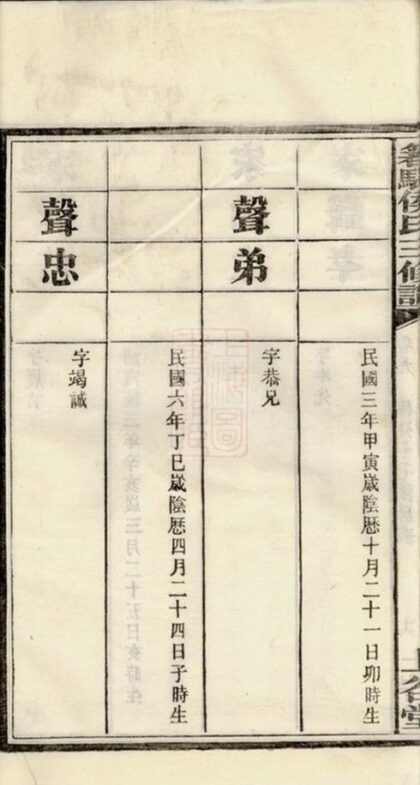 侯氏三修譜
上谷堂
民國三年甲寅歲陰暦十月二十一日卯時生
聲弟
字恭兄
民國六年丁巳歲陰暦四月二十四日子時生
聲忠
字竭誠